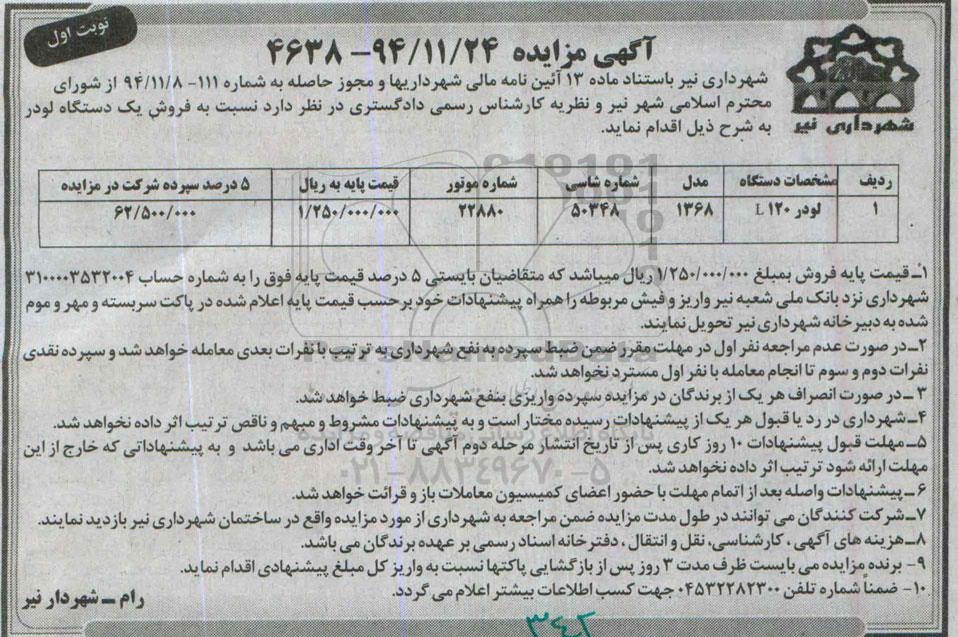 نوبت اول
آگهی مزایده ۹۴/۱۱/۲۴- ۴۶۳۸
شهرداری نیر
شهرداری نیر باستناد ماده ۱۳ آئین نامه مالی شهرداریها و مجوز حاصله به شماره ۱۱۱- ۹۴/۱۱/۸ از شورای
محترم اسلامی شهر نیر و نظریه کارشناس رسمی دادگستری در نظر دارد نسبت به فروش یک دستگاه لودر
به شرح ذیل اقدام نماید.
ردیف مشخصات دستگاه مدل شماره شاسی شماره موتور قیمت پایه به ریال ۵ درصد سپرده شرکت در مزایده
۱ لودر L ۱۲۰ ۱۳۶۸ ۵۰۳۴۸ ۲۲۸۸۰ ۱/۲۵۰/۰۰۰/۰۰۰ ۶۲/۵۰۰/۰۰۰
۱ـ قیمت پایه فروش بمبلغ ۱/۲۵۰/۰۰۰/۰۰۰ ریال میباشد که متقاضیان بایستی ۵ درصد قیمت پایه فوق را به شماره حساب ۳۱۰۰۰۰۳۵۳۲۰۰۴
شهرداری نزد بانک ملی شعبه نیر واریز و فیش مربوطه را همراه پیشنهادات خود برحسب قیمت پایه اعلام شده در پاکت سربسته و مهر و موم
شده به دبیرخانه شهرداری نیر تحویل نمایند.
۲ـ در صورت عدم مراجعه نفر اول در مهلت مقرر ضمن ضبط سپرده به نفع شهرداری به ترتیب با نفرات بعدی معامله خواهد شد و سپرده نقدی
نفرات دوم و سوم تا انجام معامله با نفر اول مسترد نخواهد شد.
۳ ـ در صورت انصراف هر یک از برندگان در مزایده سپرده واریزی بنفع شهرداری ضبط خواهد شد.
۴ـ شهرداری در رد یا قبول هر یک از پیشنهادات رسیده مختار است و به پیشنهادات مشروط و مبهم و ناقص ترتیب اثر داده نخواهد شد.
۵ـ مهلت قبول پیشنهادات ۱۰ روز کاری پس از تاریخ انتشار مرحله دوم آگهی تا آخر وقت اداری می باشد و به پیشنهاداتی که خارج از این
مهلت ارائه شود ترتیب اثر داده نخواهد شد.
۶ ـ پیشنهادات واصله بعد از اتمام مهلت با حضور اعضای کمیسیون معاملات باز و قرائت خواهد شد.
۷ـ شرکت کنندگان می توانند در طول مدت مزایده ضمن مراجعه به شهرداری از مورد مزایده واقع در ساختمان شهرداری نیر بازدید نمایند.
۸ـ هزینه های آگهی ، کارشناسی، نقل و انتقال ، دفترخانه اسناد رسمی بر عهده برندگان می باشد.
۹- برنده مزایده می بایست ظرف مدت ۳ روز پس از بازگشایی پاکتها نسبت به واریز کل مبلغ پیشنهادی اقدام نماید.
۱۰- ضمناً شماره تلفن ۰۴۵۳۲۲۸۲۳۰۰ جهت کسب اطلاعات بیشتر اعلام می گردد.
رام ـ شهردار نیر
ParsNamadData
۰۲۱-۸۸۳۴۹۶۷۰-۵